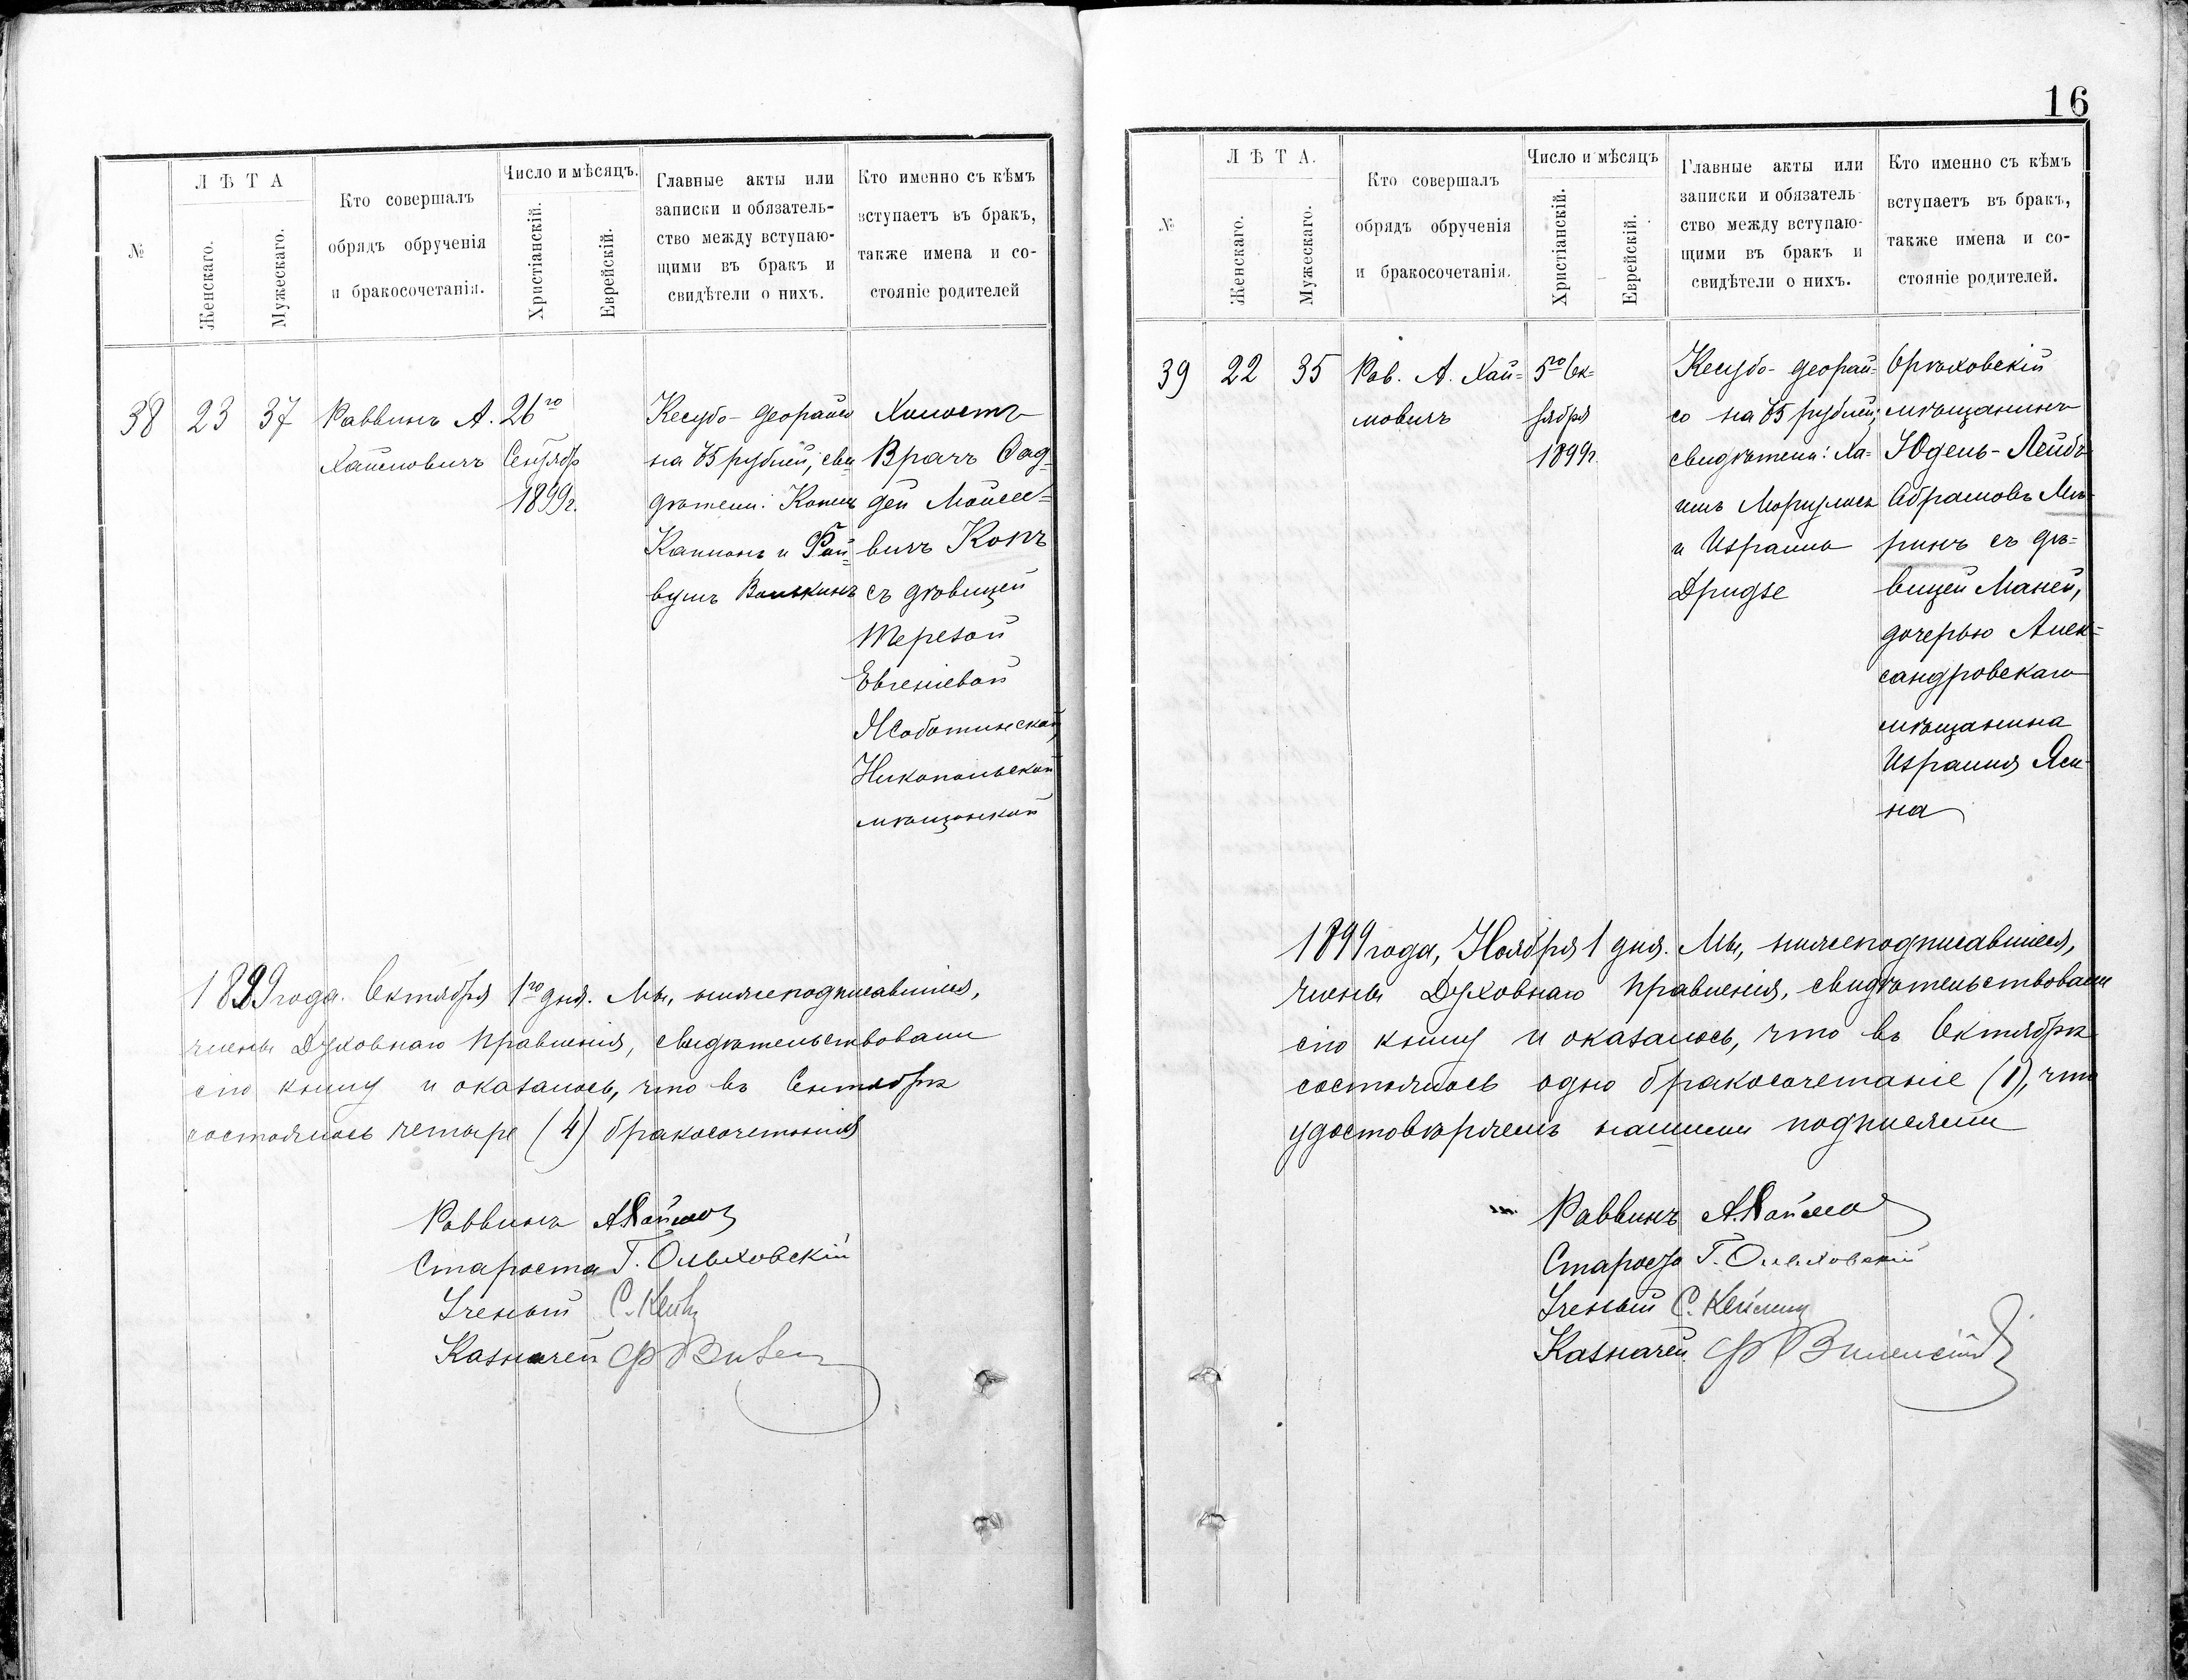 №
ЛѢТА
Женскаго.
Мужескаго.
Кто совершалъ
обрядъ обрученія
и бракосочетанія.
Число и мѣсяцъ.
Христіанскій.
Еврейскій.
Главные акты или
записки и обязатель-
ство между вступаю-
щими въ бракъ и
свидѣтели о нихъ.
Кто именно съ кѣмъ
вступаетъ въ бракъ,
также имена и со-
стояніе родителей
38
23
37
Раввинъ А.
Хаймовичъ
26го
Сентябр
1899г.
Кесубо-деорайсо
на 75 рублей, сви
дѣтели: Копель
Каплонъ и Фай-
вушъ
Холостъ
Врачъ Фад-
дей Моисее-
вичъ Копъ
съ дѣвицей
Терезой
Евгеніевой
Никопольской
мѣщанкой
1899 года. Октября 1го дня. Мы, нижеподписавшіеся,
члены Духовнаго Правленія, свидѣтельствовали
сію книгу и оказалось, что въ Сентябрѣ
состоялось четыре (4) бракосочетанія
Раввинъ
Староста Г. Ольховскій
Ученый С.
Казначей Ф
16
№
ЛѢТА.
Женскаго.
Мужескаго.
Кто совершалъ
обрядъ обрученія
и бракосочетанія.
Число и мѣсяцъ
Христіанскій.
Еврейскій.
Главные акты или
записки и обязатель-
ство между вступаю-
щими въ бракъ и
свидѣтели о нихъ.
Кто именно съ кѣмъ
вступаетъ въ бракъ,
также имена и со-
стояніе родителей.
39
22
35
Рав. А. Хай-
мовичъ
5го Ок-
тября
1899г.
Кесубо-деорай-
со на 75 рублей;
свидѣтели: Ха-
имъ
и Израиль
Дридзе
Орѣховскій
мѣщанинъ
Юдель-Лейбъ
Абрамовъ
съ дѣ-
вицей Маней,
дочерью Алек-
сандровскаго
мѣщанина
Израиля Яси-
на
1899 года, Ноября 1 дня. Мы, нижеподписавшіеся,
члены Духовнаго Правленія, свидѣтельствовали
сію книгу и оказалось, что въ Октябрѣ
состоялось одно бракосочетаніе (1), что
удостовѣряемъ нашими подписями
Раввинъ
Староста Г. Ольховскій
Ученый С.
Казначей Ф Виленскій